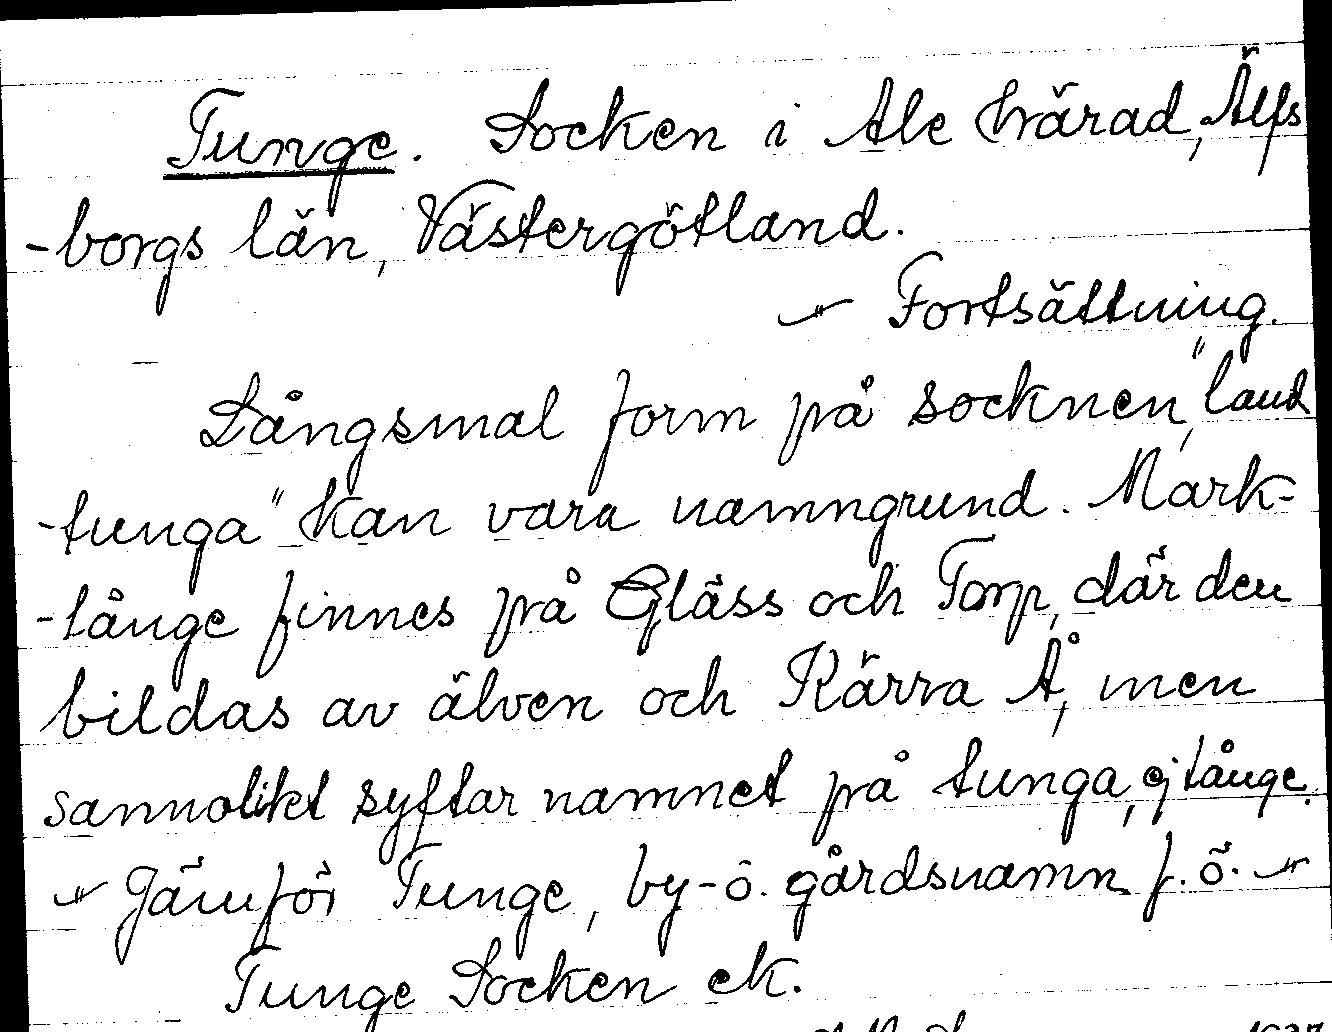 Tunge. Socken i Ale Härad, Älfs
-borgs län, Västergötland.
Fortsättning.
Långsmal form på socknen, "land
-tunga" kan vara namngrund. Mark-
-tånge finnes på Gläss och Torp, där den
bildas av älven och Kärra Å, men
sannolikt syftar namnet på tunga, ej tånge.
Jämför Tunge, by- o. gårdsnamn f. ö.
Tunge Socken ek.